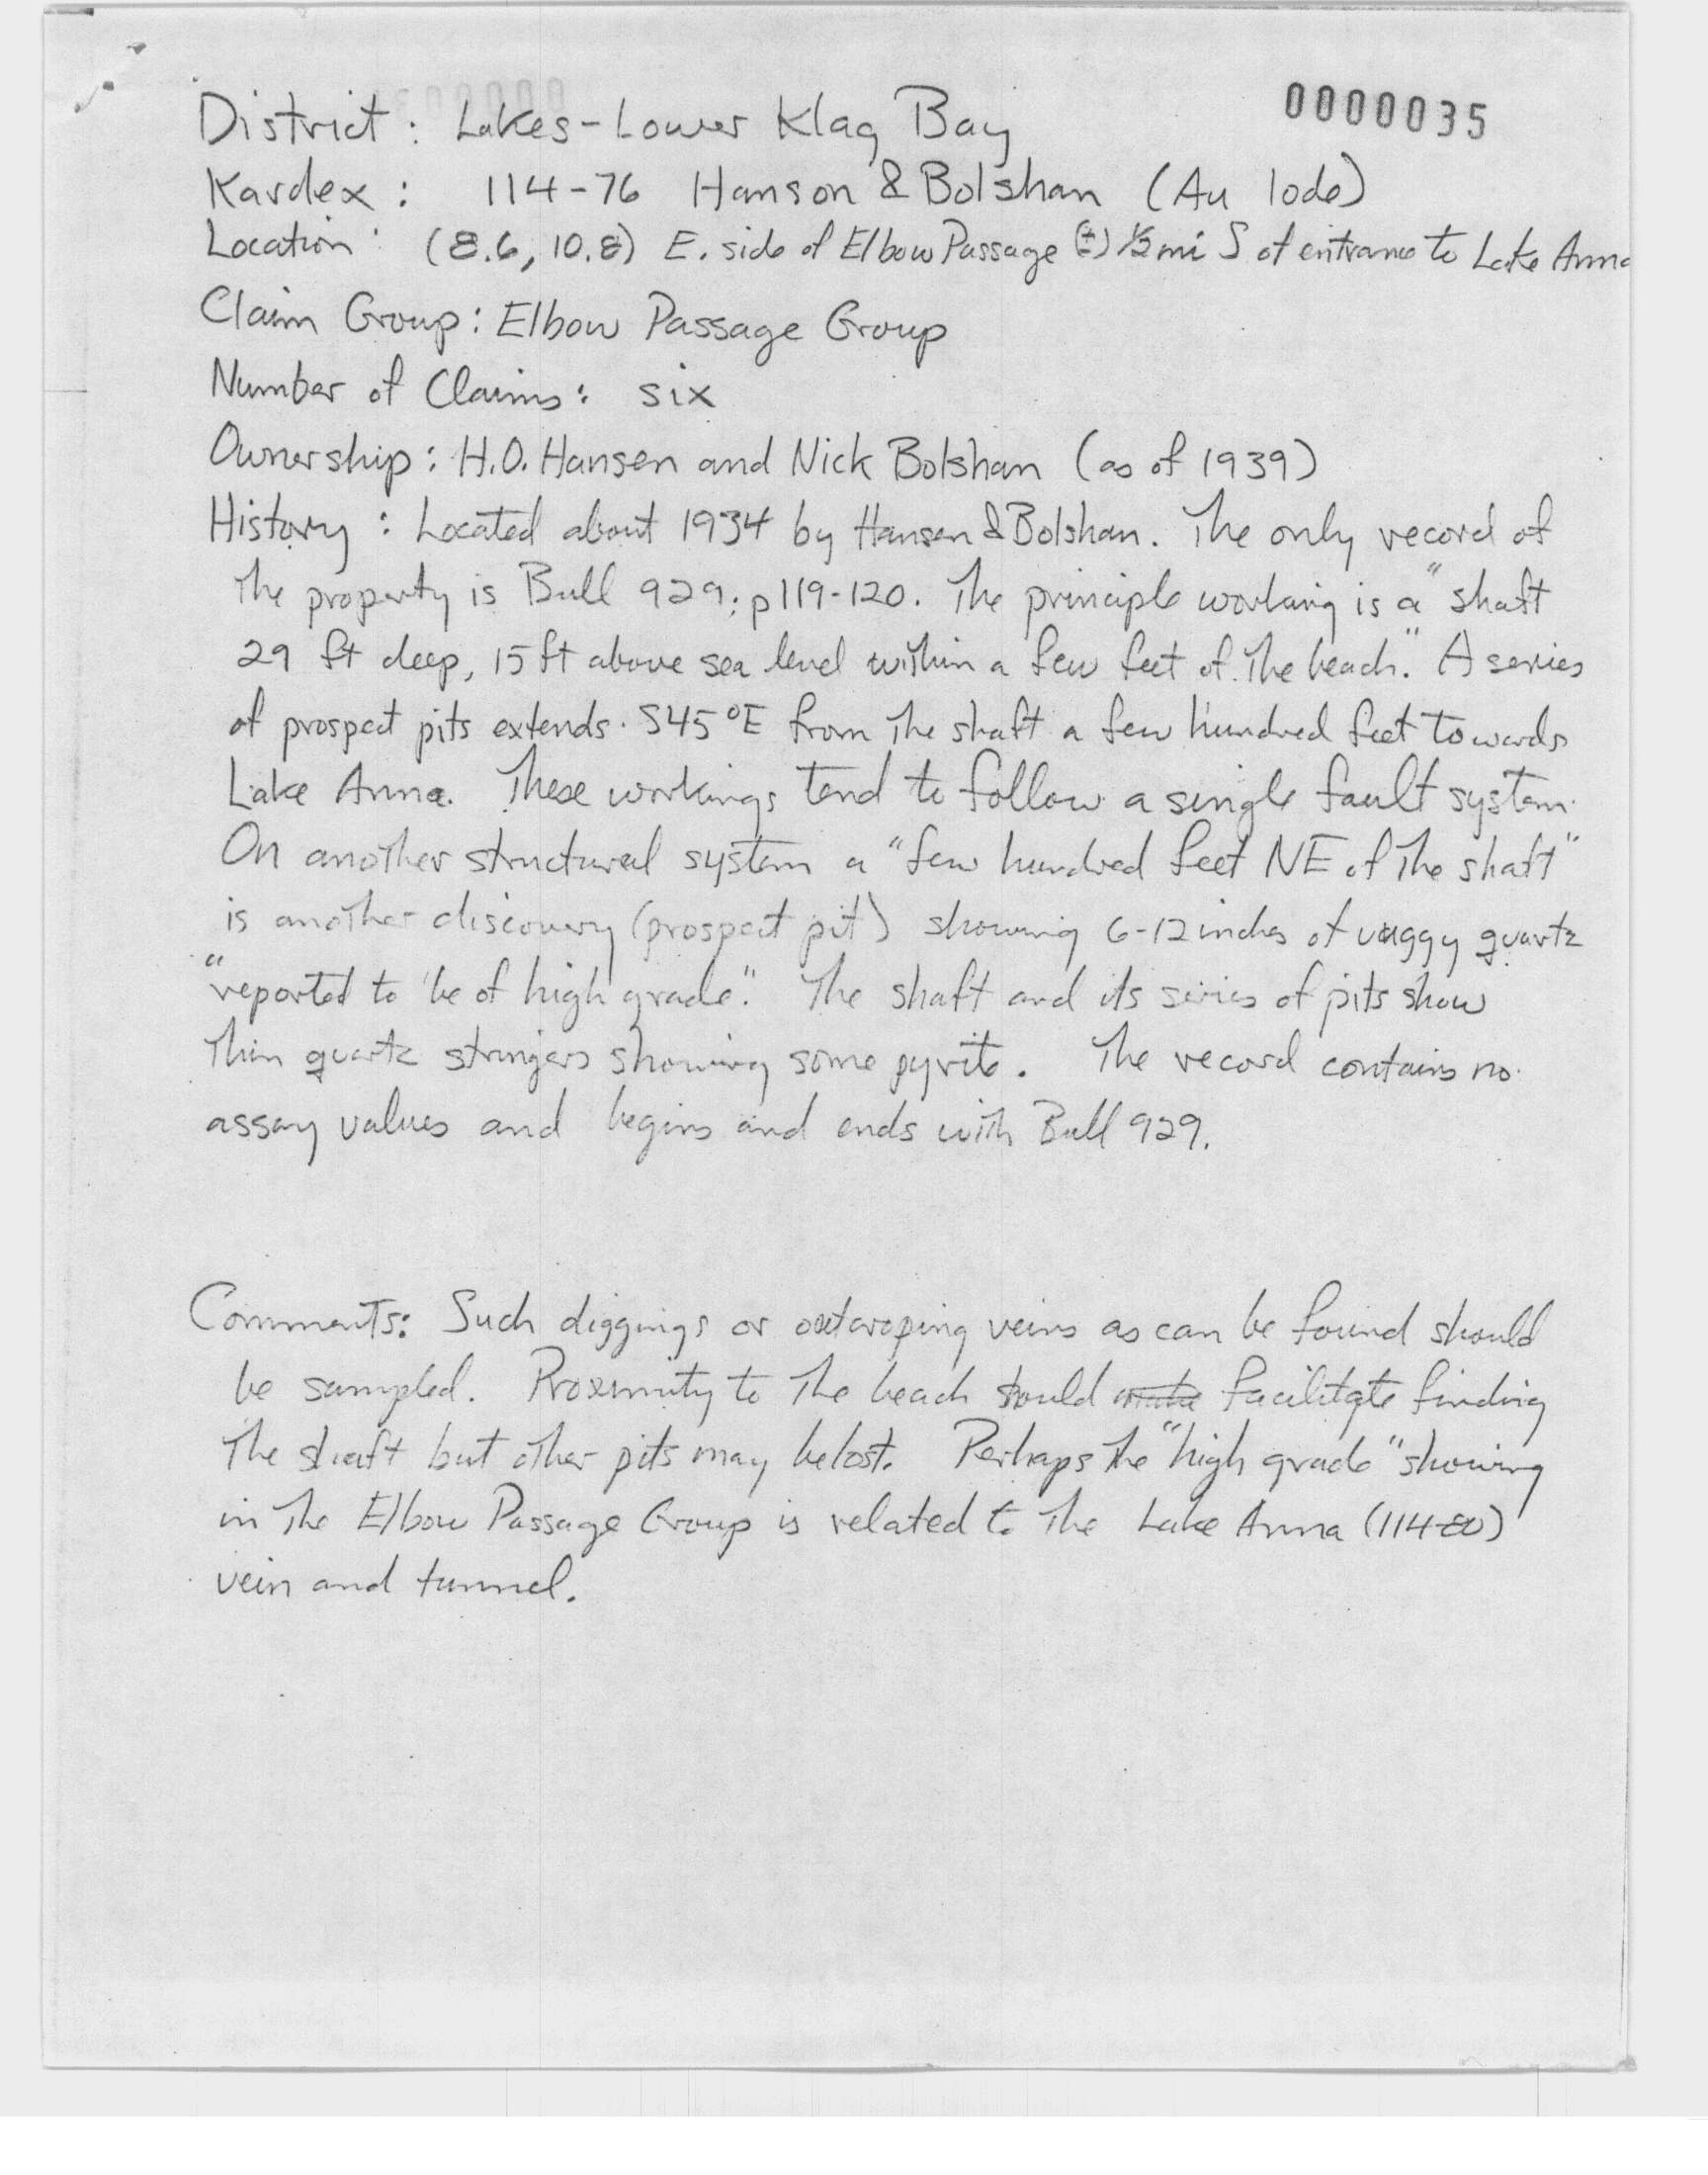 0000035
District: Lakes-Lower Klag Bay
Kardex: 114-76 Hanson & Bolshan (Au lode)
Location: (8.6, 10.8) E. side of Elbow Passage (±) 1/2 mi S of entrance to Lake Anna
Claim Group: Elbow Passage Group
Number of Claims: six
Ownership: H.O. Hansen and Nick Bolshan (as of 1939)
History: Located about 1934 by Hansen & Bolshan. The only record of
the property is Bull 929; p119-120. The principle working is a "shaft
29 ft deep, 15 ft above sea level within a few feet of the beach." A series
of prospect pits extends S45°E from the shaft a few hundred feet towards
Lake Anna. These workings tend to follow a single fault system.
On another structural system a "few hundred feet NE of the shaft"
is another discovery (prospect pit) showing 6-12 inches of vuggy quartz
"reported to be of high grade." The shaft and its series of pits show
thin quartz stringers showing some pyrite. The record contains no
assay values and begins and ends with Bull 929.
Comments: Such diggings or outcroping veins as can be found should
be sampled. Proximity to the beach should facilitate finding
the shaft but other pits may be lost. Perhaps the "high grade" showing
in the Elbow Passage Group is related to the Lake Anna (114-80)
vein and tunnel.